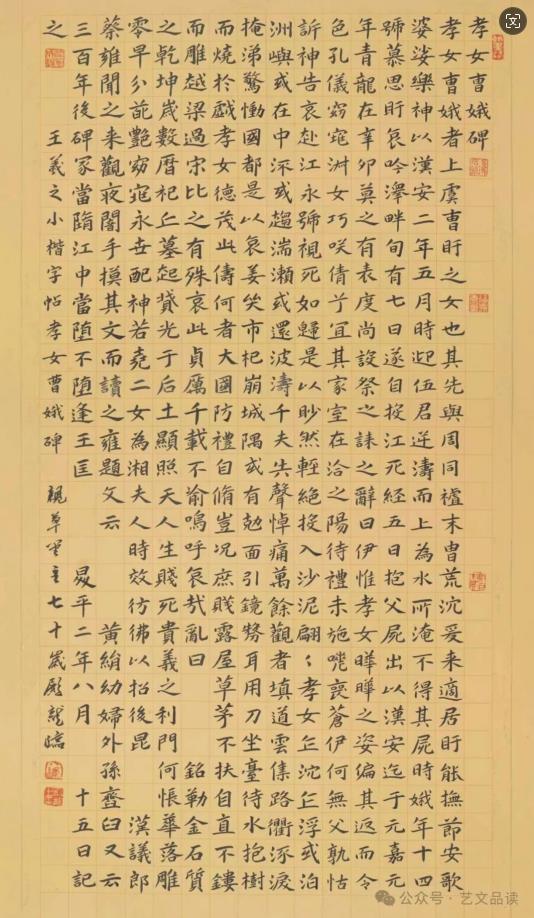 孝女曹娥碑
孝女曹娥者上虞曹盱之女也其先與周同祖末胄荒沉爰来適居盱能撫節安歌
婆娑樂神以漢安二年五月時迎伍君逆濤而上為水所淹不得其屍時娥年十四
號慕思盱哀吟澤畔旬有七日遂自投江死経五日抱父屍出以漢安迄于元嘉元
年青龍在辛卯莫之有表度尚設祭之誄之辭曰伊惟孝女曄曄之姿偏其返而令
色孔儀窈窕淑女巧咲倩兮宜其家室在洽之陽待禮未施嗟喪蒼伊何無父孰怙
訴神告哀赴江永號視死如歸是以眇然輕絕投入沙泥翩々孝女乍沉乍浮或泊
洲嶼或在中流或趨湍瀨或還波濤千夫失聲悼痛萬餘觀者填道雲集路衢泳淚
掩涕驚慟國都是以哀姜哭市杞崩城隅或有尅面引鏡剺耳用刀坐臺待水抱樹
而燒於戲孝女德茂此儔何者大國防禮自脩豈況庶賤露屋草茅不扶自直不鏤
而雕越梁過宋比之有殊哀此貞厲千載不渝嗚呼哀哉亂曰 銘勒金石質
之乾坤歲數曆祀丘墓起墳光于后土顯照天人生賤死貴義之利門何悵華落雕
零早分葩艷窈窕永世配神若堯二女為湘夫人時效彷彿以招後昆 漢議郎
蔡雍聞之来觀夜闇手摸其文而讀之雍題文云 黃絹幼婦外孫齏臼又云
三百年後碑冢當墮江中當墮不墮逢王匡 昇平二年八月 十五日記
之 王羲之小楷字帖孝女曹娥碑 草堂主七十歲 臨
公众号·艺文品读